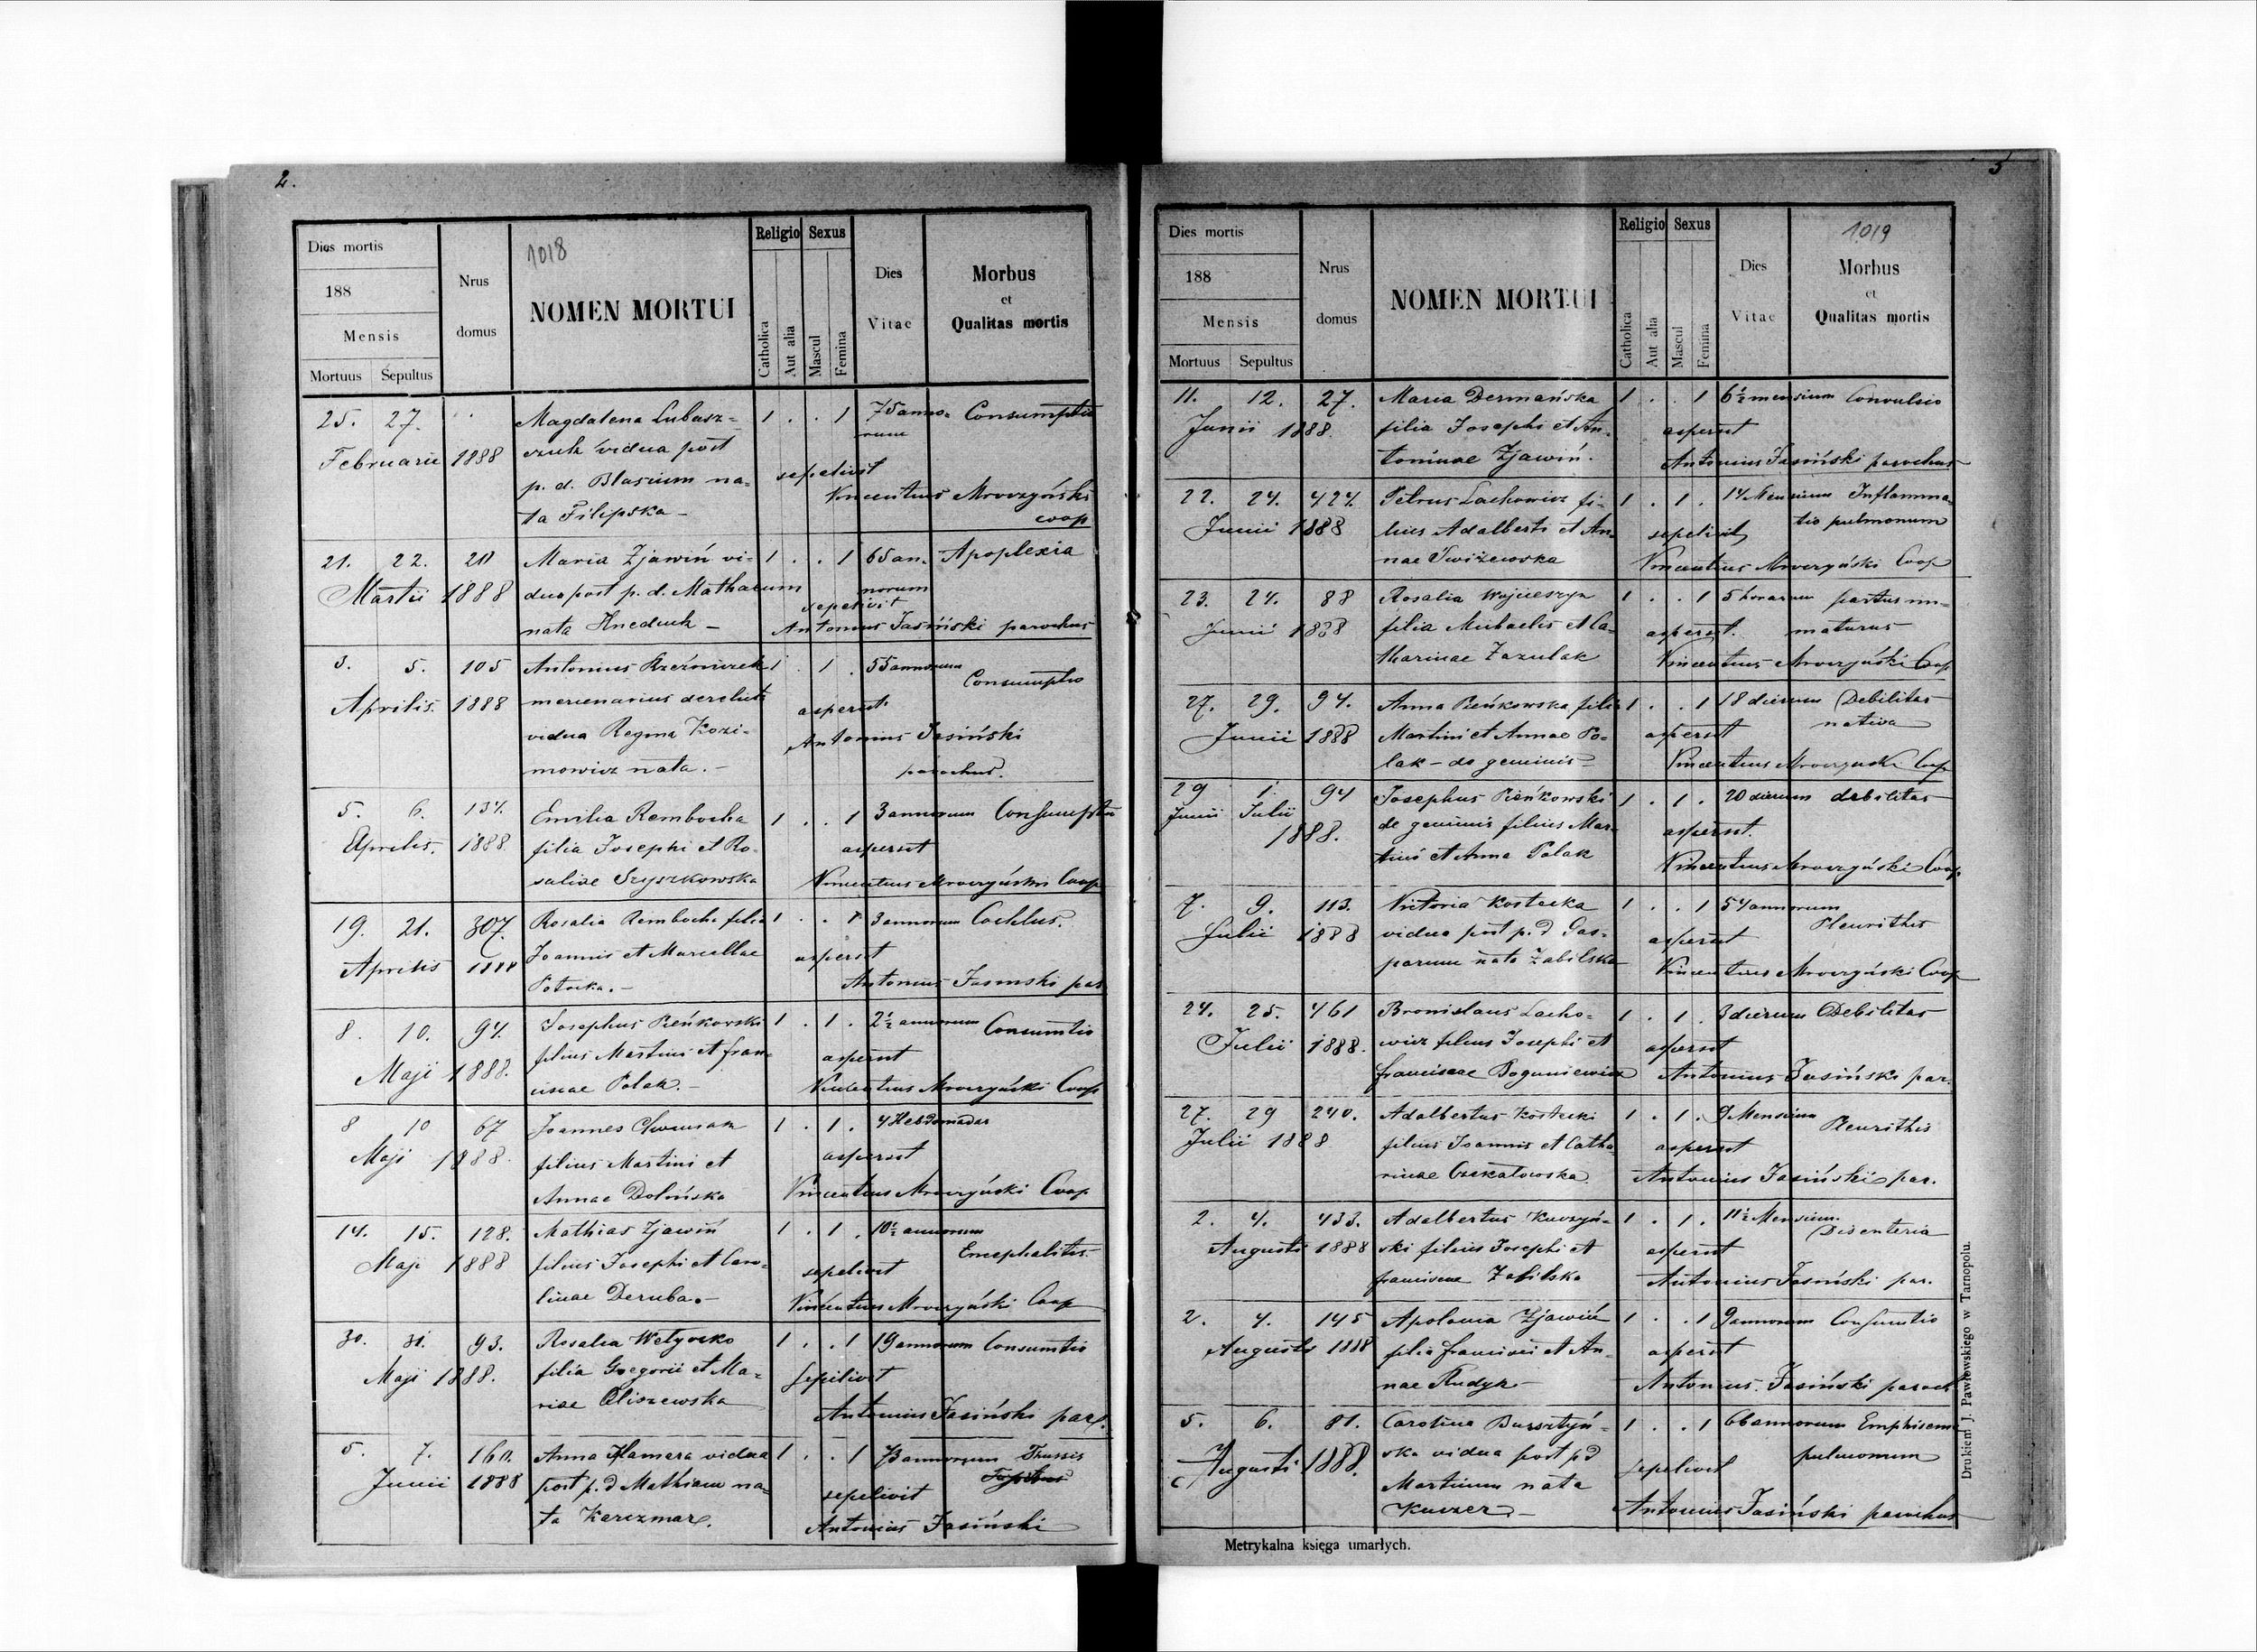 2.
1018
Dies mortis
188
Mensis
Mortuus Sepultus
Nrus
domus
NOMEN MORTUI
Religio Sexus
Catholica
Aut alia
Mascul
Femina
Dies
Vitae
Morbus
et
Qualitas mortis
25. 27. Magdalena Lubasz= 1 . . 1 75 anno= Consumptio
rum
Februarii 1888 czuk vidua post
p. d. Blasium na= sepelivit
Vincentius Mroczyński
ta Filipska - coop
21. 22. 211 Maria Zjawiń vi- 1 . . 1 65 an. Apoplexia
Martii 1888 dua post p. d. Mathaeum norum
sepelivit
nata Hneduk - Antonius Jasiński parochus
3. 5. 105 Antonius Krzéowiczek 1 . 1 . 55 annorum
Consumptio
Aprilis. 1888 mercenarius derelicta aspersit
vidua Regina Kozi- Antonius Jasiński
mowicz nata. - parochus.
5. 6. 134. Emilia Rembocha 1 . . 1 3 annorum Consumptio
Aprilis. 1888. filia Josephi et Ro- aspersit
saliae Szyszkowska Vincentius Mroczyński Coop
19. 21. 307. Rosalia Rembocha filia 1 . . 1 3 annorum
Aprilis 1888 Joannis et Marcellae aspersit
Potocka. - Antonius Jasinski par
8. 10. 94. Josephus Pieńkowski 1 . 1 . 2½ annorum Consumtio
Maji 1888. filius Martini et Fran= aspersit
ciscae Polak. - Vincentius Mroczyński Coop
8 10 67 Joannes 1 . 1 . 4 Hebdomadas
Maji 1888. filius Martini et aspersit
Annae Dolińska Vincentius Mroczyński Coop
14. 15. 128. Mathias Zjawiń 1 . 1 . 10½ annorum
Encephalitis
Maji 1888 filius Josephi et Caro= sepelivit
linae Deruba. - Vincentius Mroczyński Coop
30. 31. 93. Rosalia Wełyczko 1 . . 1 19 annorum Consumtio
Maji 1888. filia Gregorii et Ma= sepelivit
riae Oliszewska Antonius Jasiński par.
5. 7. 160. Anna Hamera vidua 1 . . 1 73 annorum Thussis
Junii 1888 post p. d Mathiam na= sepelivit
ta Karczmar. Antonius Jasiński
5
1019
Dies mortis
188
Mensis
Mortuus Sepultus
Nrus
domus
NOMEN MORTUI
Religio Sexus
Catholica
Aut alia
Mascul
Femina
Dies
Vitae
Morbus
et
Qualitas mortis
11. 12. 27. Maria Dermańska 1 . . 1 6½ mensium Convulsio
Junii 1888. filia Josephi et An- aspersit
toninae Zjawiń. Antonius Jasiński parochus
22. 24. 424. Petrus Lachowicz fi- 1 . 1 . 14 Mensium Inflamma=
Junii 1888 lius Adalberti et An= sepelivit tio pulmonum
nae Vincentius Mroczyński Coop
23. 24. 88 Rosalia Wojcieszyn 1 . . 1 5 horarum partus im=
Junii 1888 filia Michaelis et Ca= aspersit. maturus
tharinae Zazulak Vincentius Mroczyński Coop
27. 29. 94. Anna Pieńkowska filia 1 . . 1 18 dierum Debilitas
nativa
Junii 1888 Martini et Annae Po= aspersit
lak - de geminis - Vincentius Mroczyński Coop
29 1. 94 Josephus Pieńkowski 1 . 1 . 20 dierum debilitas
Junii Julii de geminis filius Mar=
1888. tini et Anna Polak aspersit.
Vincentius Mroczyński Coop.
7. 9. 113. Victoria Kostecka 1 . . 1 54 annorum
Pleurithis
Julii 1888 vidua post p. d Gas= aspersit
parum nata Zabilska Vincentius Mroczyński Coop
24. 25. 461 Bronislaus Lacho= 1 . 1 . 3 dierum Debilitas
Julii 1888. wicz filius Josephi et aspersit
Franciscae Boguniewicz Antonius Jasiński par.
27. 29 240. Adalbertus Kostecki 1 . 1 . 9 Mensium
Pleurithis
Julii 1888 filius Joannis et Catha aspersit
rinae Czekałowska Antonius Jasiński par.
2. 4. 433. Adalbertus Kuczyń= 1 . 1 . 11½ Mensium.
Disenteria
Augusti 1888 ski filius Josephi et aspersit
Franciscae Zabilska Antonius Jasiński par.
2. 4. 145 Apolonia Zjawiń 1 . . 1 9 annorum Consumtio
Augusti 1888 filia Francisci et An= aspersit
nae Rudyk - Antonius Jasiński paroch
5. 6. 81. Carolina Bursztyń= 1 . . 1 66 annorum Emphisema
Augusti 1888. ska vidua post p d sepelivit pulmonum
Martinum nata
Kuczer - Antonius Jasiński parochus
Metrykalna księga umarłych.
Drukiem J. Pawłowskiego w Tarnopolu.